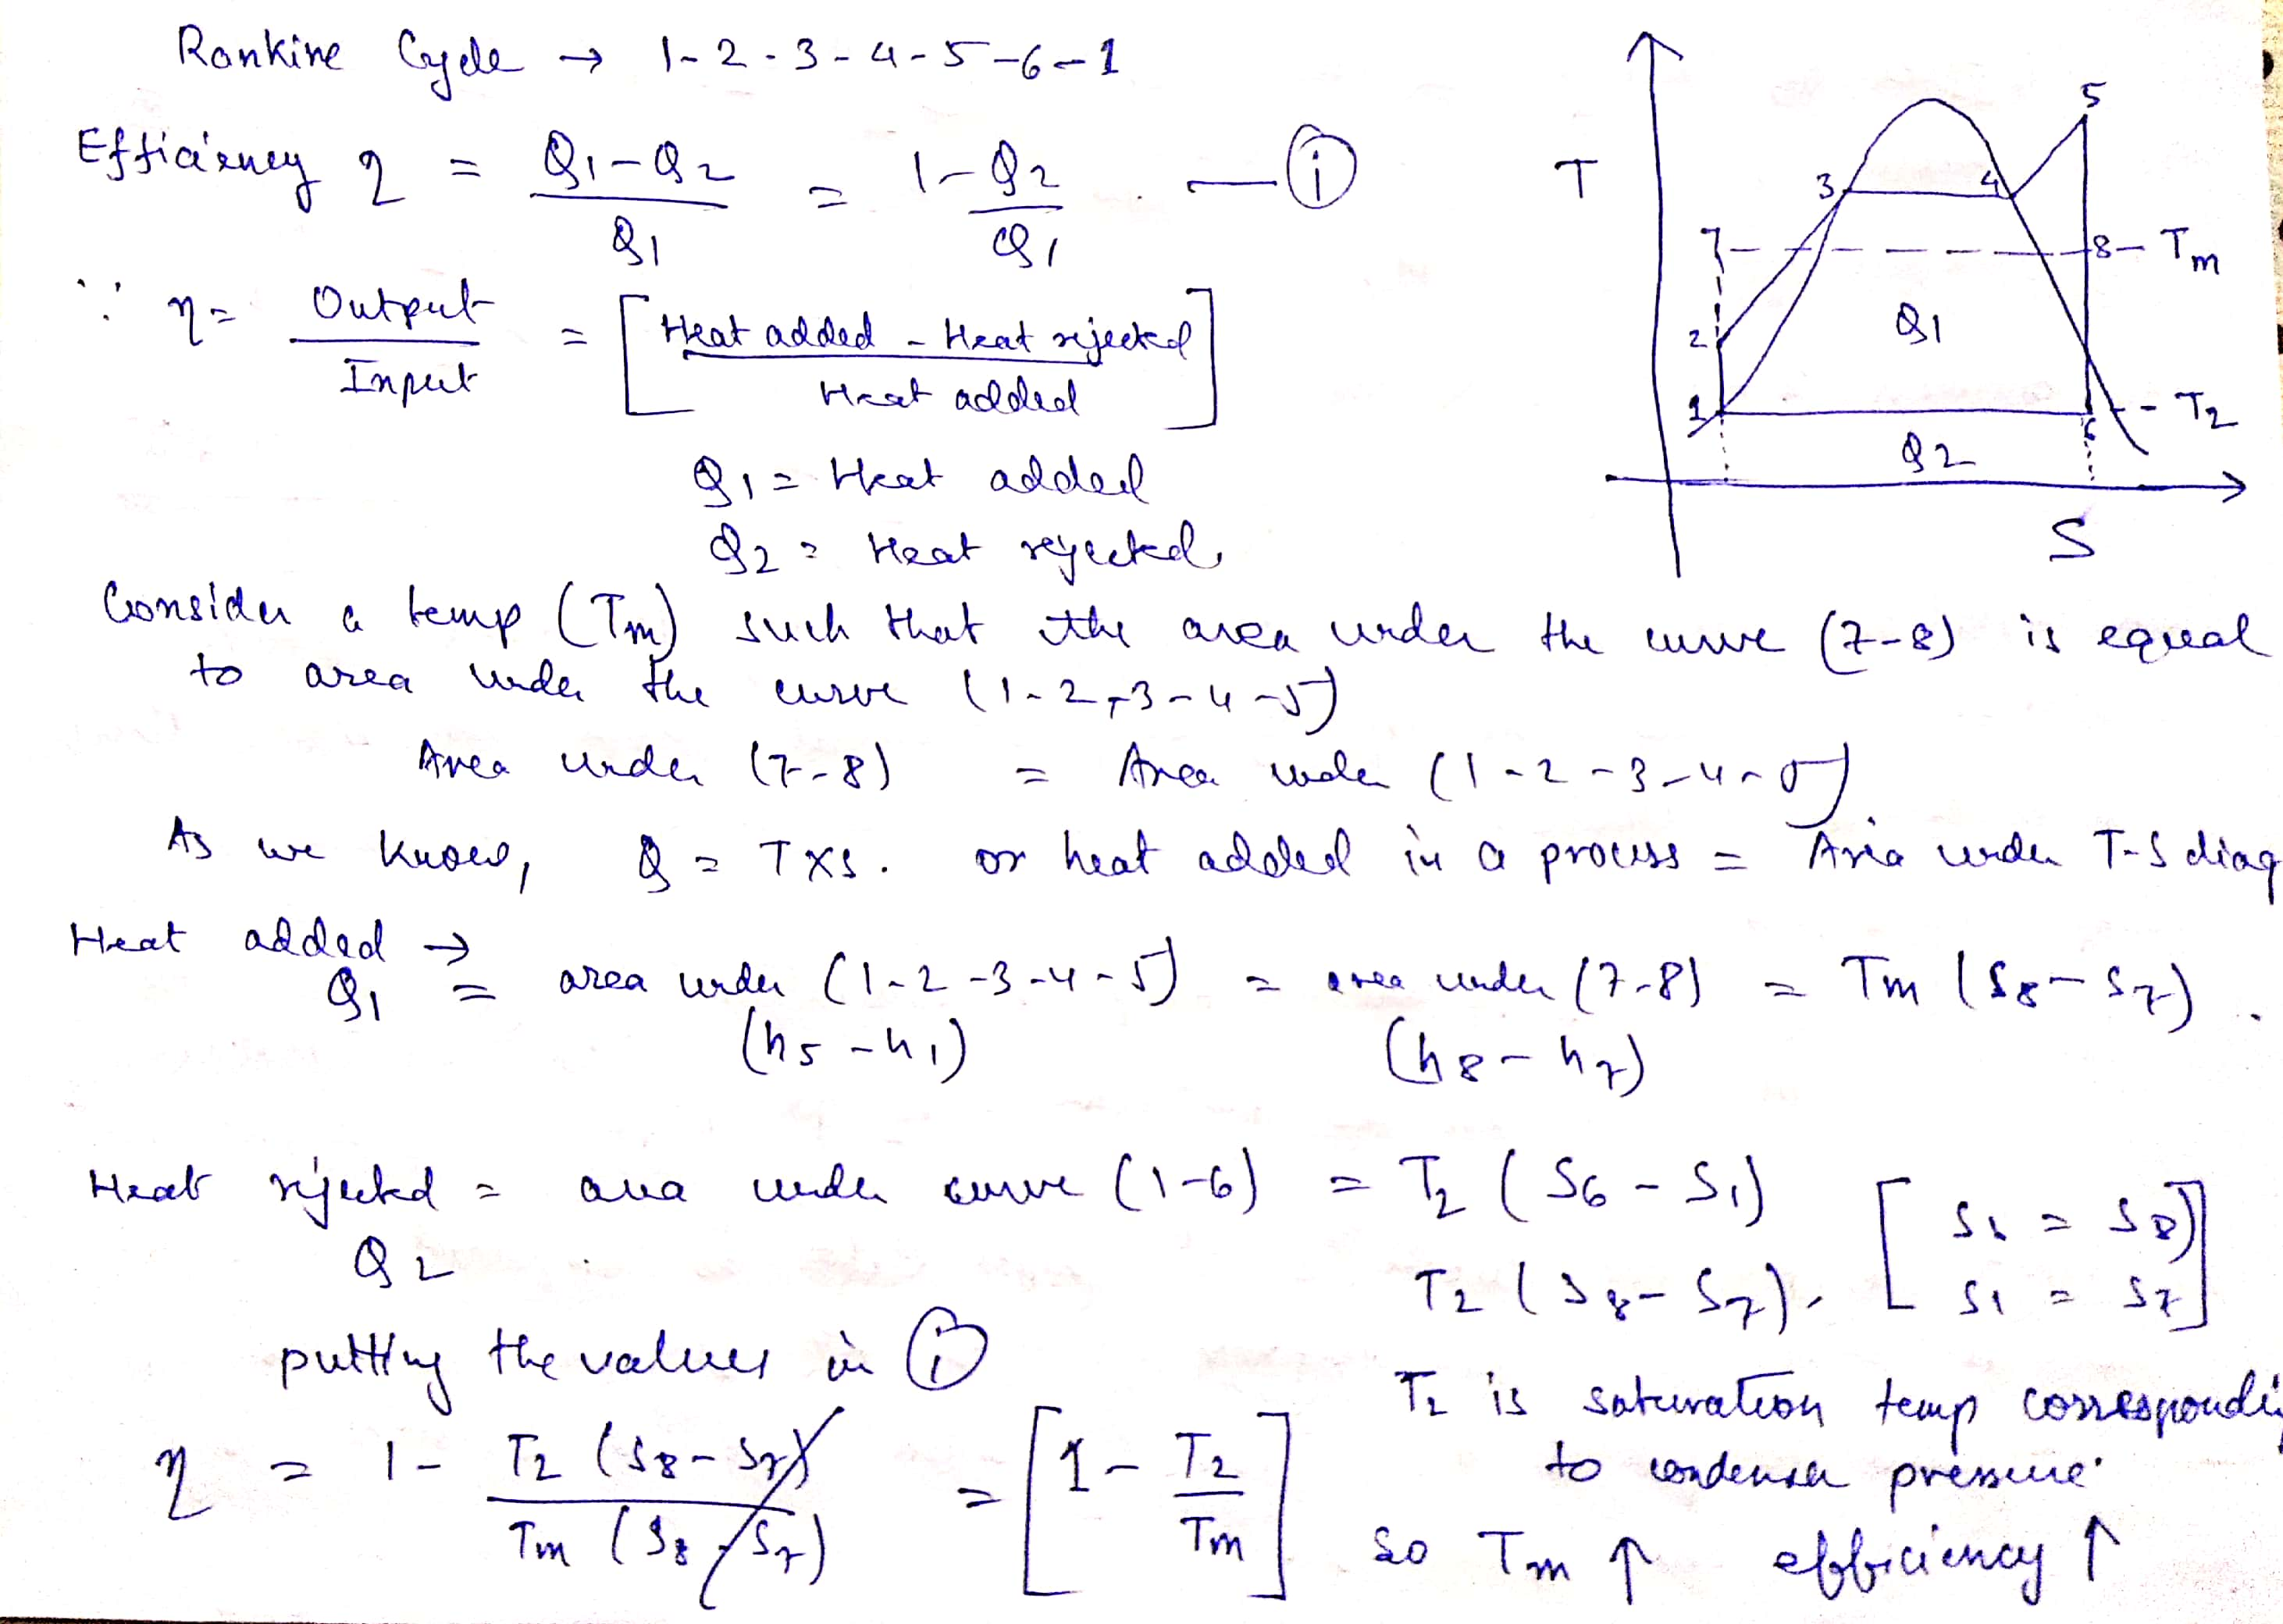 Rankine Cycle → 1-2-3-4-5-6-1
Efficiency η = Q1-Q2 / Q1 = 1-Q2 / Q1 . — (i)
∵ η = Output / Input = [ Heat added - Heat rejected / Heat added ]
Q1 = Heat added
Q2 = Heat rejected
T
5
3
4
7
8 - Tm
2
Q1
1
6
- T2
Q2
S
Consider a temp (Tm) such that the area under the curve (7-8) is equal
to area under the curve (1-2-3-4-5)
Area under (7-8) = Area under (1-2-3-4-5)
As we know, Q = T×S. or heat added in a process = Area under T-S diag
Heat added →
Q1 = area under (1-2-3-4-5) = area under (7-8) = Tm (S8-S7).
(h5-h1) (h8-h7)
Heat rejected = area under curve (1-6) = T2 (S6-S1)
Q2
T2 (S8-S7). [ S6 = S8
S1 = S7 ]
putting the values in (i)
T2 is saturation temp correspondin
to condenser pressure.
η = 1 - T2 (S8-S7) / Tm (S8-S7) = [ 1 - T2 / Tm ]
So Tm ↑ efficiency ↑